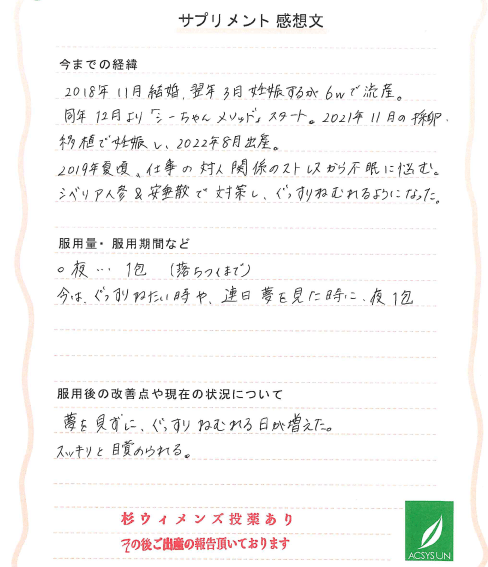 サプリメント 感想文
今までの経緯
2018年11月結婚、翌年3月妊娠するが6wで流産。
同年12月より「シーちゃんメソッド」スタート。2021年11月の採卵、
移植で妊娠し、2022年8月出産。
2019年夏頃、仕事の対人関係のストレスから不眠に悩む。
シベリア人参&安亜散で対策し、ぐっすりねむれるようになった。
服用量・服用期間など
○夜… 1包 (落ちつくまで)
今は、ぐっすりねたい時や、連日夢を見た時に、夜1包
服用後の改善点や現在の状況について
夢を見ずに、ぐっすりねむれる日が増えた。
スッキリと目覚められる。
杉ウィメンズ投薬あり
その後ご出産の報告頂いております
ACSYSUN